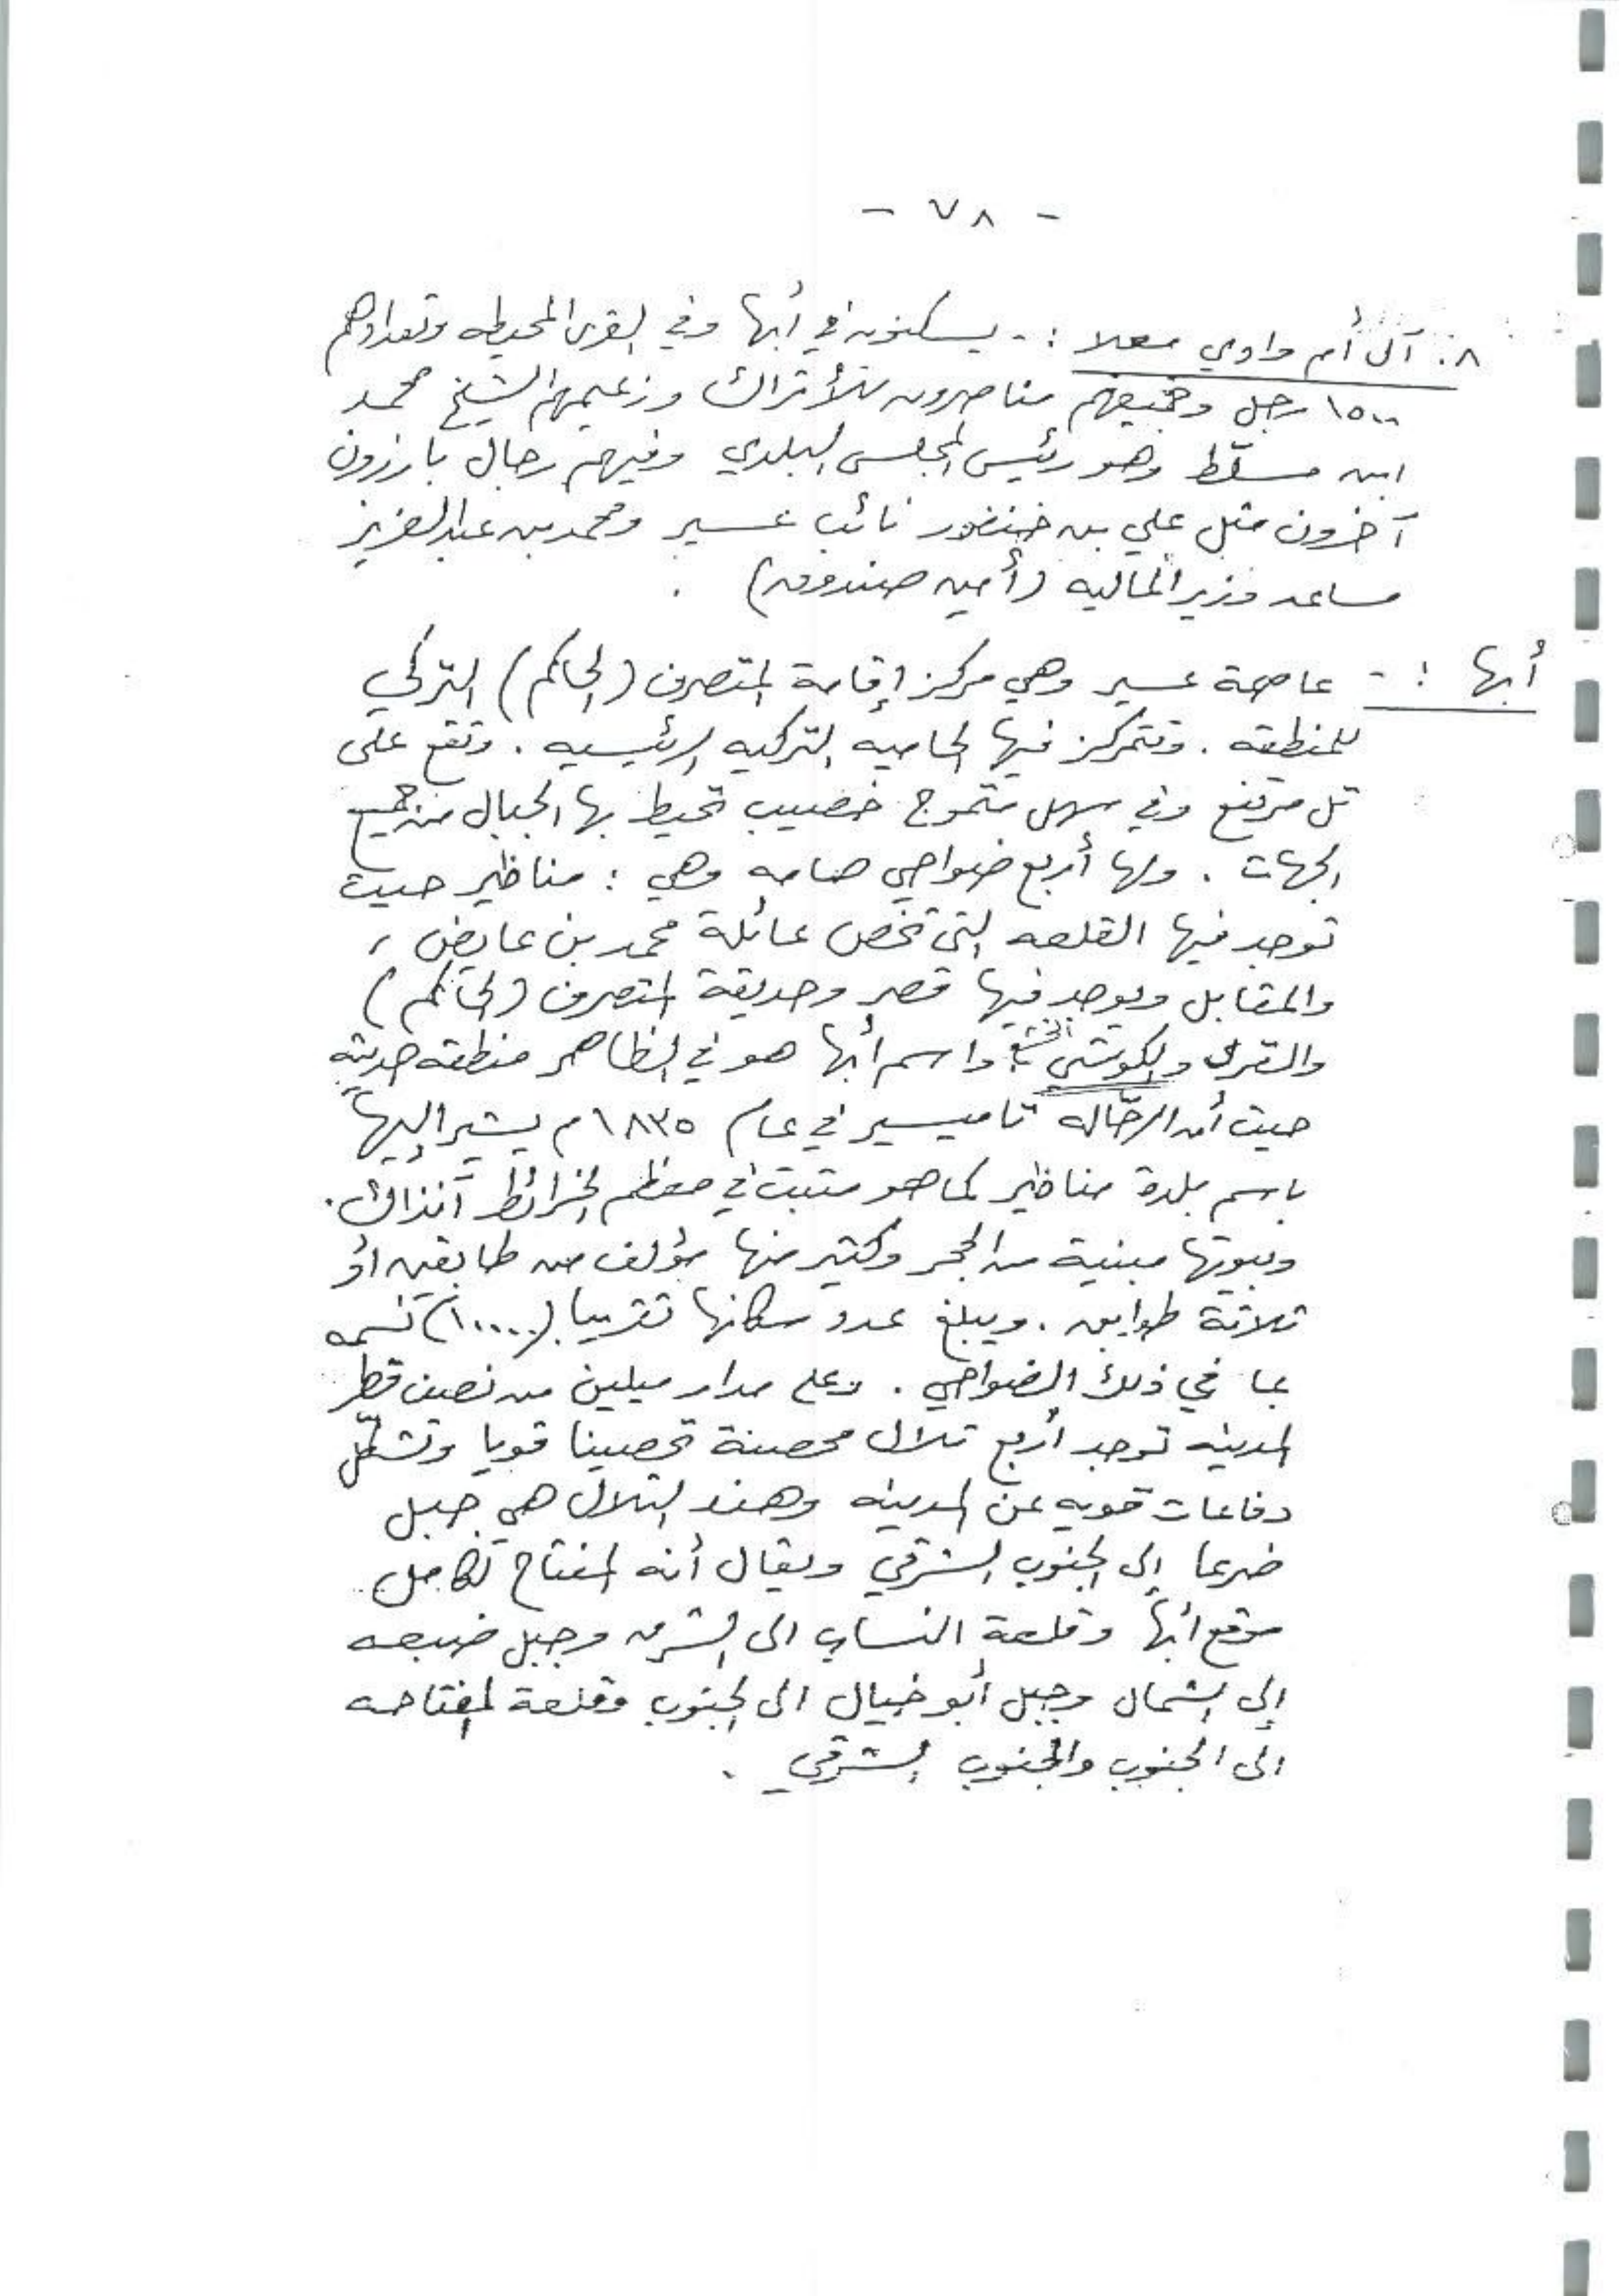 - ٧٨ -
٨. آل أم وادي معلا :- يسكنون في أبها وفي القرى المحيطه وتعدادهم
١٥٠٠ رجل وجميعهم مناصرون للأتراك وزعيمهم الشيخ محمد
ابن مسلّط وهو رئيس المجلس البلدي وفيهم رجال بارزون
آخرون مثل علي بن خنفور نائب عسير ومحمد بن عبدالعزيز
مساعد وزير الماليه (أمين صندوق) .
أبها :- عاصمة عسير وهي مركز إقامة المتصرف (الحاكم) التركي
للمنطقه . وتتمركز فيها الحاميه التركيه الرئيسيه . وتقع على
تل مرتفع وفي سهل متموج خصيب تحيط بها الجبال من جميع
الجهات . ولها أربع ضواحي هامه وهي : مناظر حيث
توجد فيها القلعه التي تخص عائلة محمد بن عايض ،
والمقابل ويوجد فيها قصر وحديقة المتصرف (الحاكم)
والقرى والكوشي واسم أبها هو في الظاهر منطقه حديثه
حيث أن الرحّاله تاميسير في عام ١٨٣٥م يشير إليها
باسم بلدة مناظر كما هو مثبت في معظم الخرائط آنذاك.
وبيوتها مبنية من الحجر وكثير منها مؤلف من طابقين أو
ثلاثة طوابق . ويبلغ عدد سكانها تقريبا (١٠٠٠٠) نسمه
بما في ذلك الضواحي . وعلى مدار ميلين من نصف قطر
المدينه توجد أربع تلال محصنة تحصينا قويا وتشكّل
دفاعات قويه عن المدينه وهذه التلال هي جبل
ضرعا إلى الجنوب الشرقي ويقال أنه المفتاح لكامل
موقع أبها وقلعة النساب الى الشرق وجبل ضبعه
إلى الشمال وجبل أبو خيال الى الجنوب وقلعة المفتاحه
الى الجنوب والجنوب الشرقي .